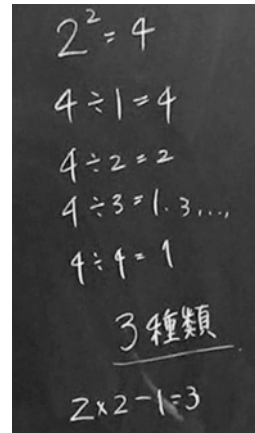 2²=4
4÷1=4
4÷2=2
4÷3=1.3...,
4÷4=1
3種類
2×2-1=3